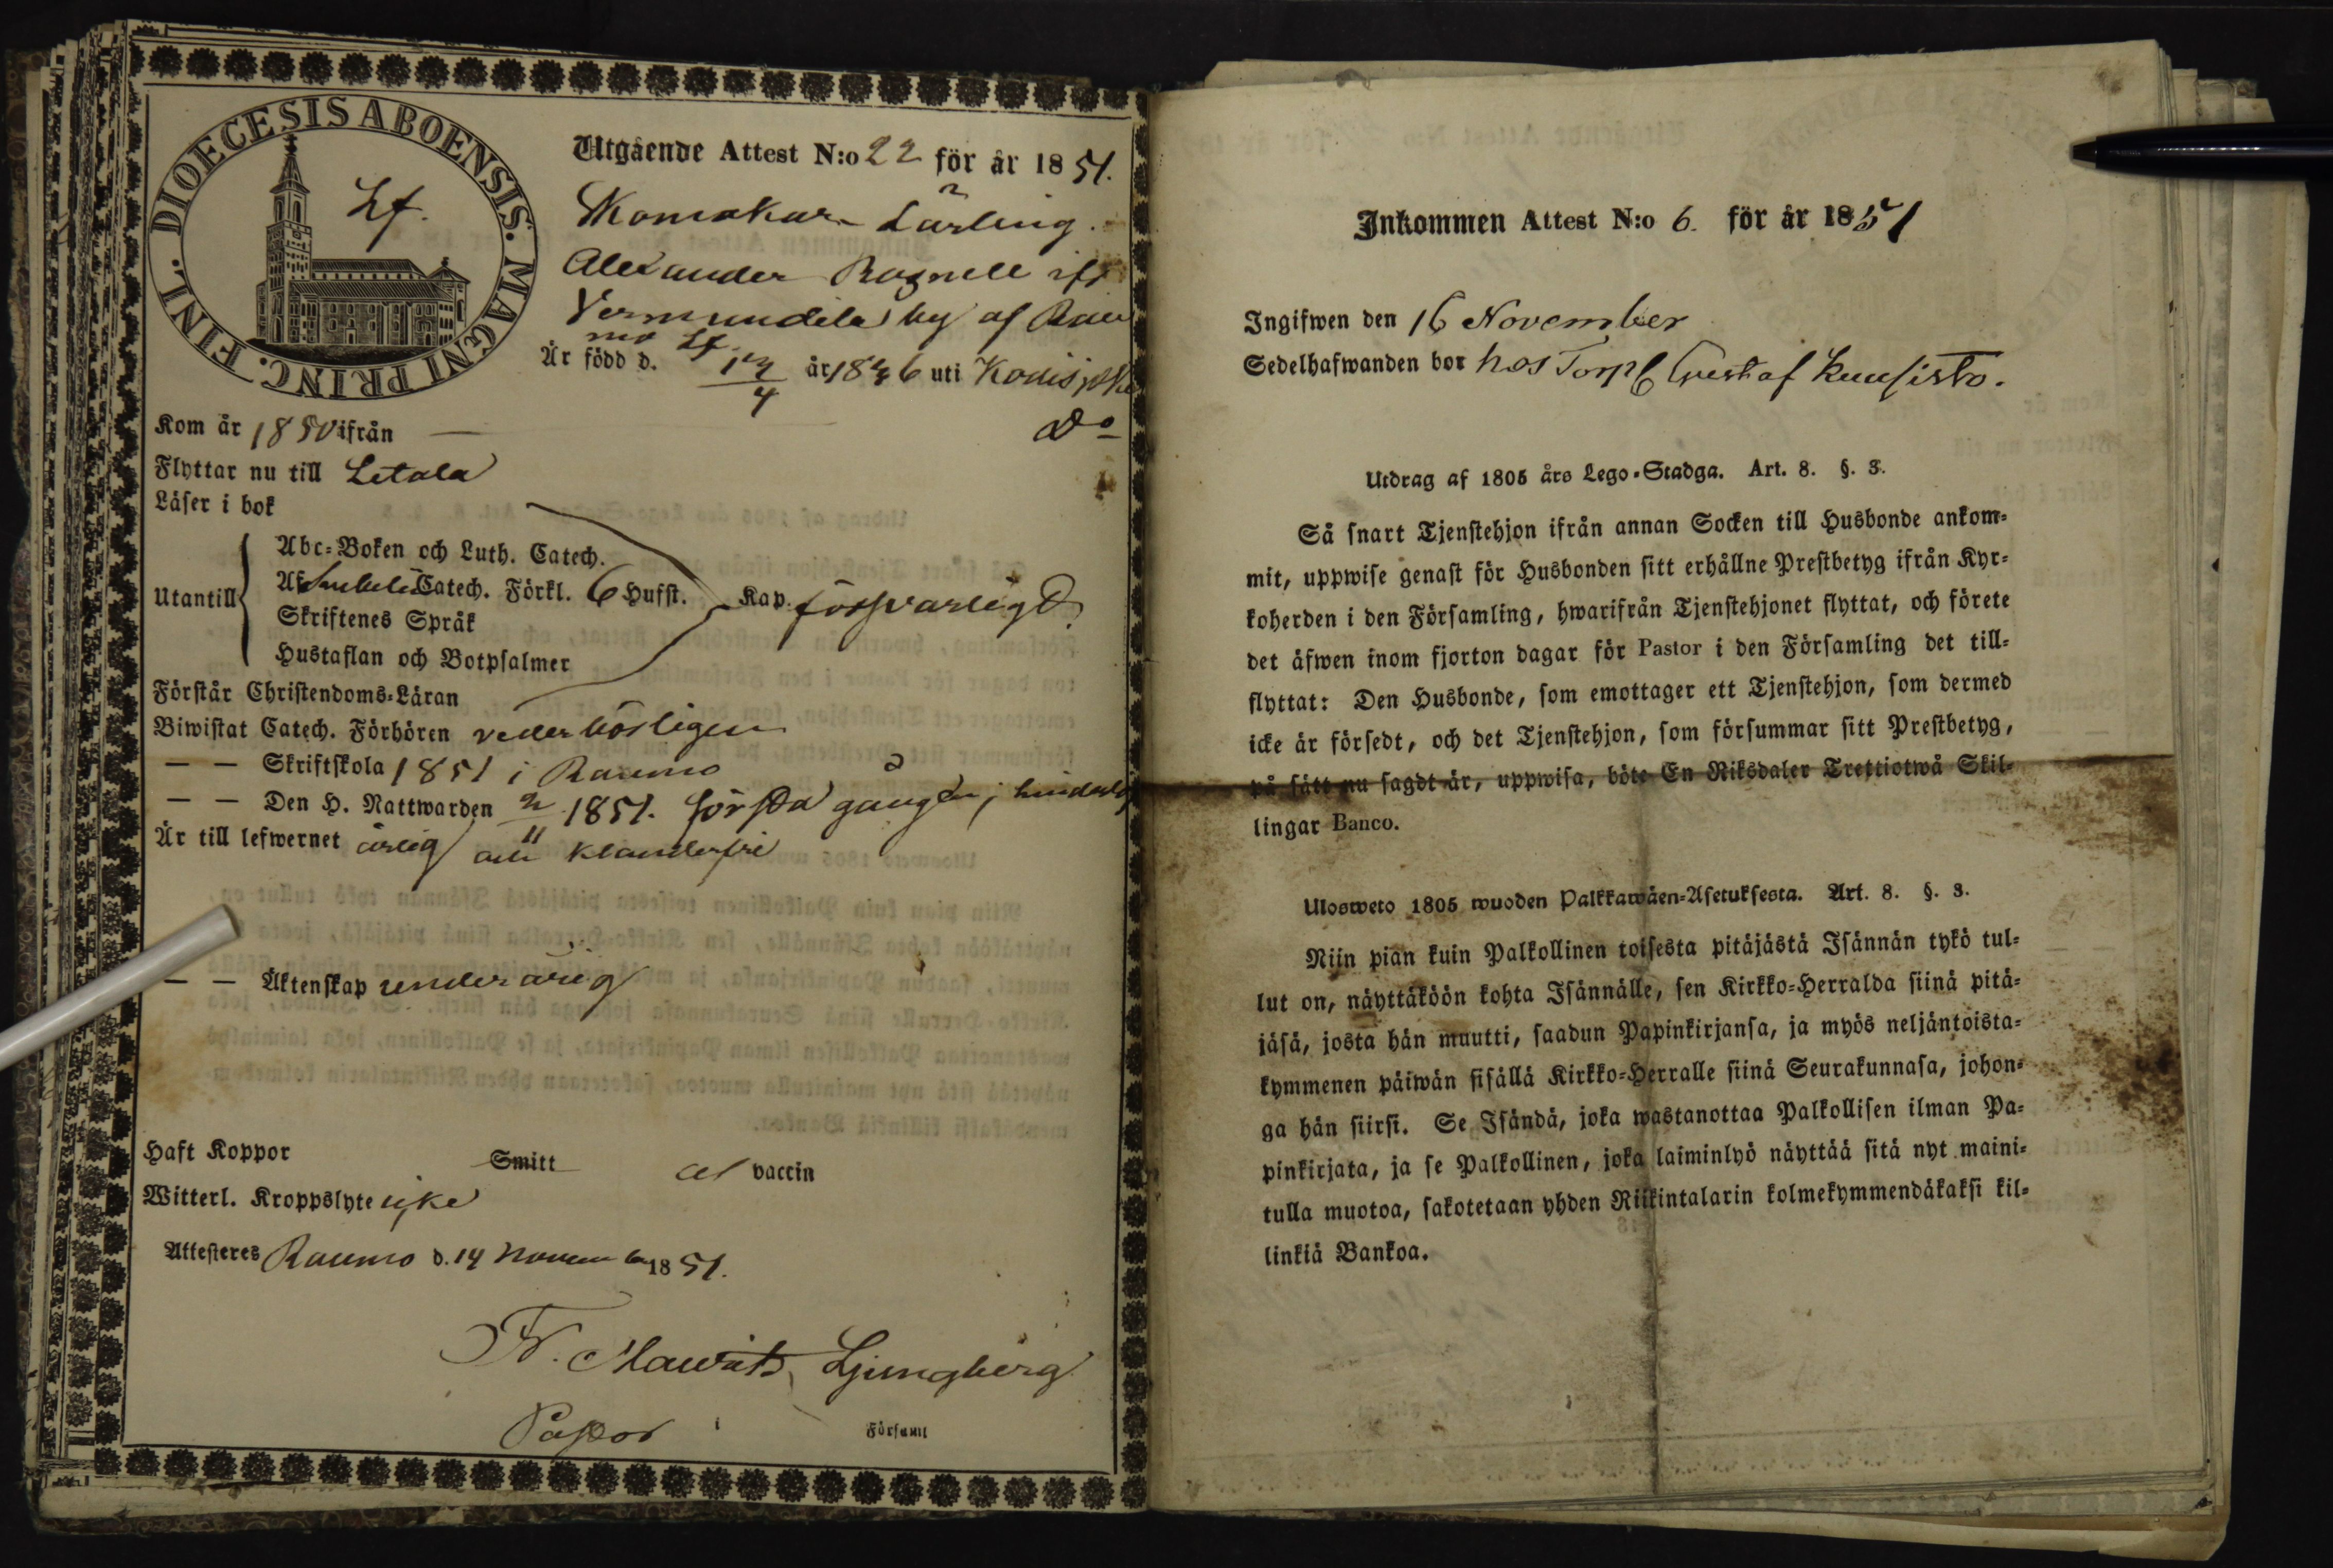 DIOECESIS ABOENSIS. MAGNI PRINC. FINL.
Lf.
Utgående Attest N:o 22 för år 1851.
Skomakar Lärling
Alexander Rosnell ifr
Vermundila by af Rau
mo Lf.
Är född d. år 1836 uti Kodisjoki
Kom år 1850 ifrån — Do
Flyttar nu till Letala
Läser i bok
Utantill
Abc-Boken och Luth. Catech.
Catech. Förkl. 6 Hufst. Kap. försvarligt
Skriftenes Språk
Hustaflan och Botpsalmer
Förstår Christendoms-Läran
Biwistat Catech. Förhören vederbörligen
— — Skriftskola 1851 i Raumo
— — Den H. Nattwarden 2/11 1851. första gången;
Är till lefwernet ärlig och klanderfri
— — Äktenskap underårig
Haft Koppor Smitt af vaccin
Witterl. Kroppslyte icke
Attesteres Raumo d. 14 November 1851.
Fr. Mawitz Ljungberg
Pastor i Församl
Inkommen Attest N:o 6. för år 1851
Ingifwen den 16 November
Sedelhafwanden bor hos Torp Gustaf Kuusisto.
Utdrag af 1805 års Lego-Stadga. Art. 8. §. 3.
Så snart Tjenstehjon ifrån annan Socken till Husbonde ankom-
mit, uppwise genast för Husbonden sitt erhållne Prestbetyg ifrån Kyr-
koherden i den Församling, hwarifrån Tjenstehjonet flyttat, och förete
det äfwen inom fjorton dagar för Pastor i den Församling det till-
flyttat: Den Husbonde, som emottager ett Tjenstehjon, som dermed
icke är försedt, och det Tjenstehjon, som försummar sitt Prestbetyg,
på sätt nu sagdt är, uppwisa, böte En Riksdaler Trettiotwå Skil-
lingar Banco.
Ulosweto 1805 wuoden Palkkawäen-Asetuksesta. Art. 8. §. 3.
Niin pian kuin Palkollinen toisesta pitäjästä Isännän tykö tul-
lut on, näyttäköön kohta Isännälle, sen Kirkko-Herralda siinä pitä-
jäsä, josta hän muutti, saadun Papinkirjansa, ja myös neljäntoista-
kymmenen päiwän sisällä Kirkko-Herralle siinä Seurakunnasa, johon-
ga hän siirsi. Se Isändä, joka wastanottaa Palkollisen ilman Pa-
pinkirjata, ja se Palkollinen, joka laiminlyö näyttää sitä nyt maini-
tulla muotoa, sakotetaan yhden Riikintalarin kolmekymmendäkaksi kil-
linkiä Bankoa.